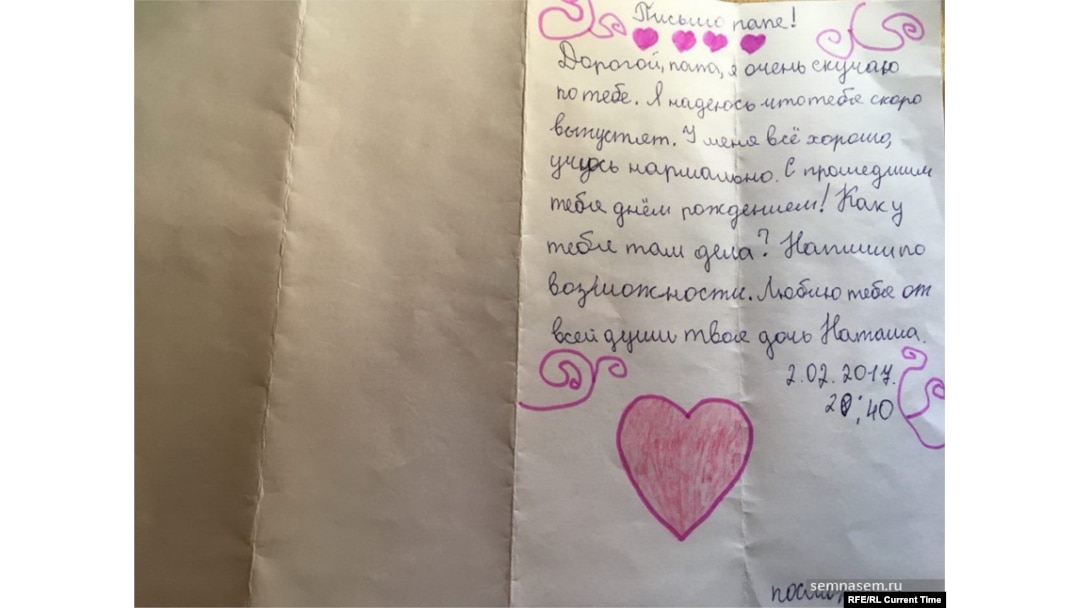 Письмо папе!
Дорогой, папа, я очень скучаю
по тебе. Я надеюсь что тебя скоро
выпустят. У меня всё хорошо,
учусь нармально. С прошедшим
тебя днём рождением! Как у
тебя там дела? Напиши по
возможности. Люблю тебя от
всей души твоя дочь Наташа.
2.02.2017.
20:40
semnasem.ru
RFE/RL Current Time